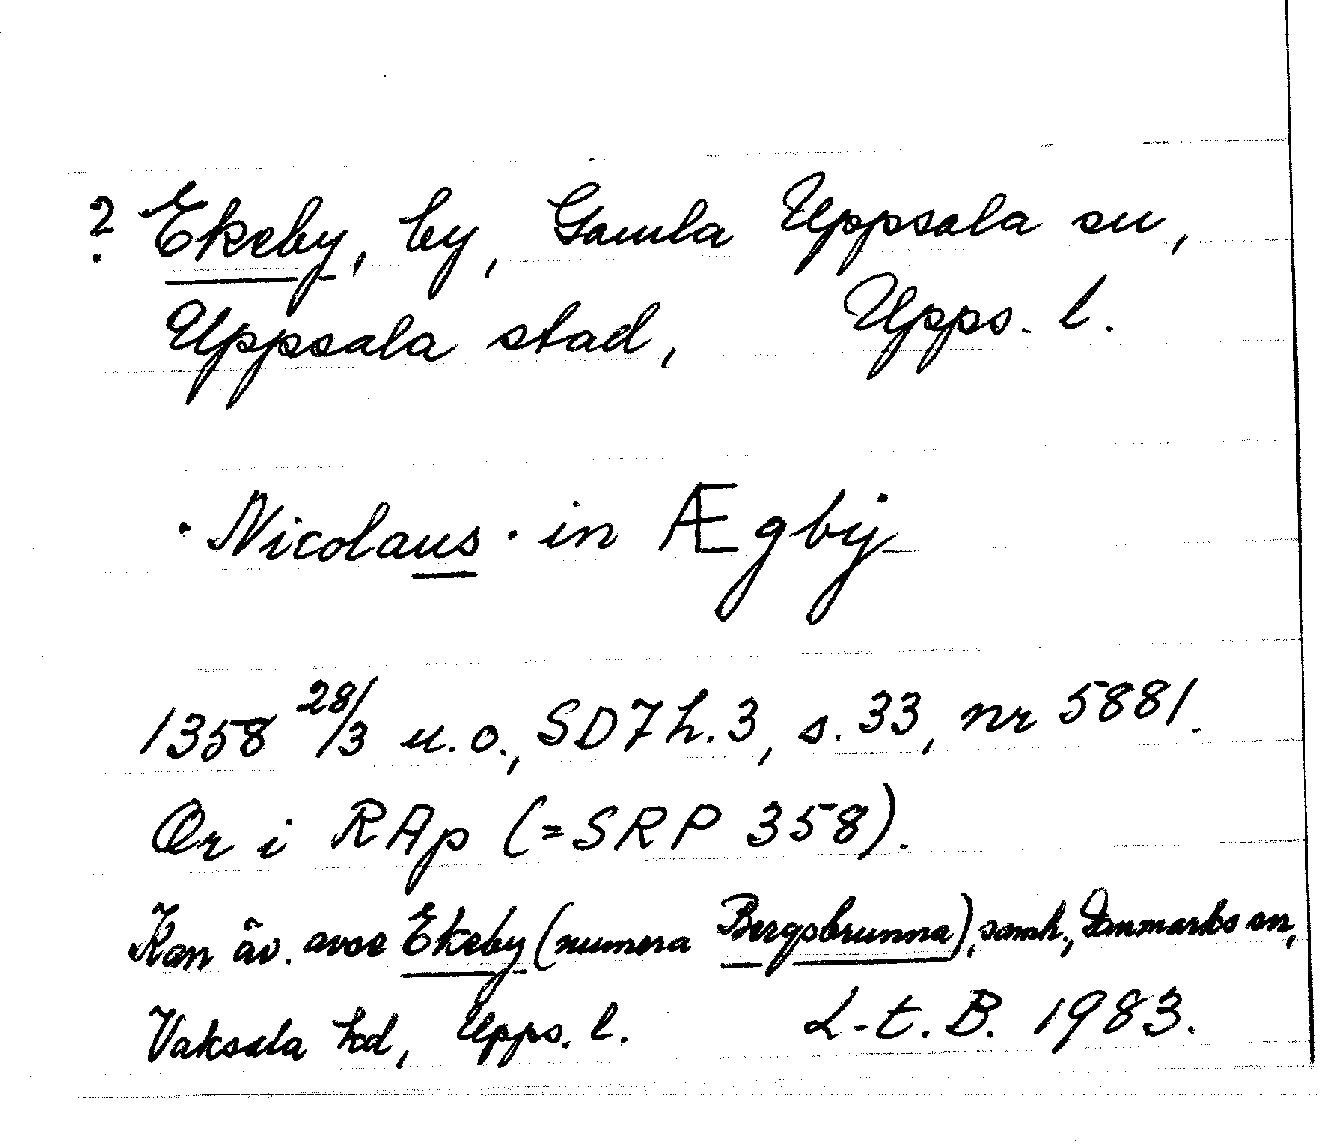 ? Ekeby, by, Gamla Uppsala sn,
Uppsala stad, Upps. l.
· Nicolaus · in Ægbÿ
1358 28/3 u.o., SD7 h.3, s.33, nr 5881.
Or i RAp (=SRP 358).
Kan äv. avse Ekeby (numera Bergsbrunna), samh., Danmarks sn,
Vaksala hd, Upps. l. L-t. B. 1983.